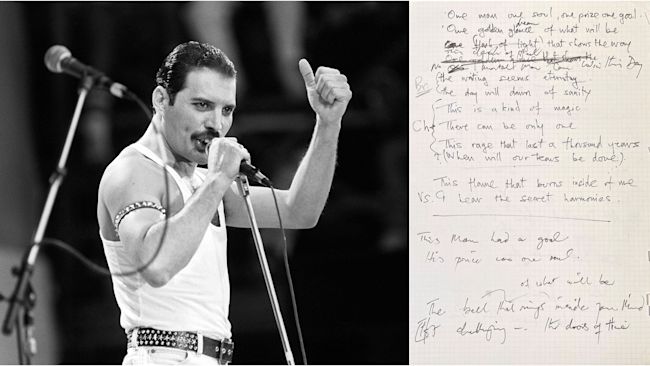 One man one soul, one prize one goal.
One golden glance of what will be
flash of light) that shows the way
No mortal man can win this Day
Br (the waiting seems eternity
the day will dawn of sanity
This is a kind of magic
Ch There can be only one
This rage that last a thousand years
(When will our tears be done)
This flame that burns inside of me
Vs. I hear the secret harmonies.
This Man had a goal
His price was one soul.
of what will be
The bell that rings inside your Mind
challenging — the doors of time